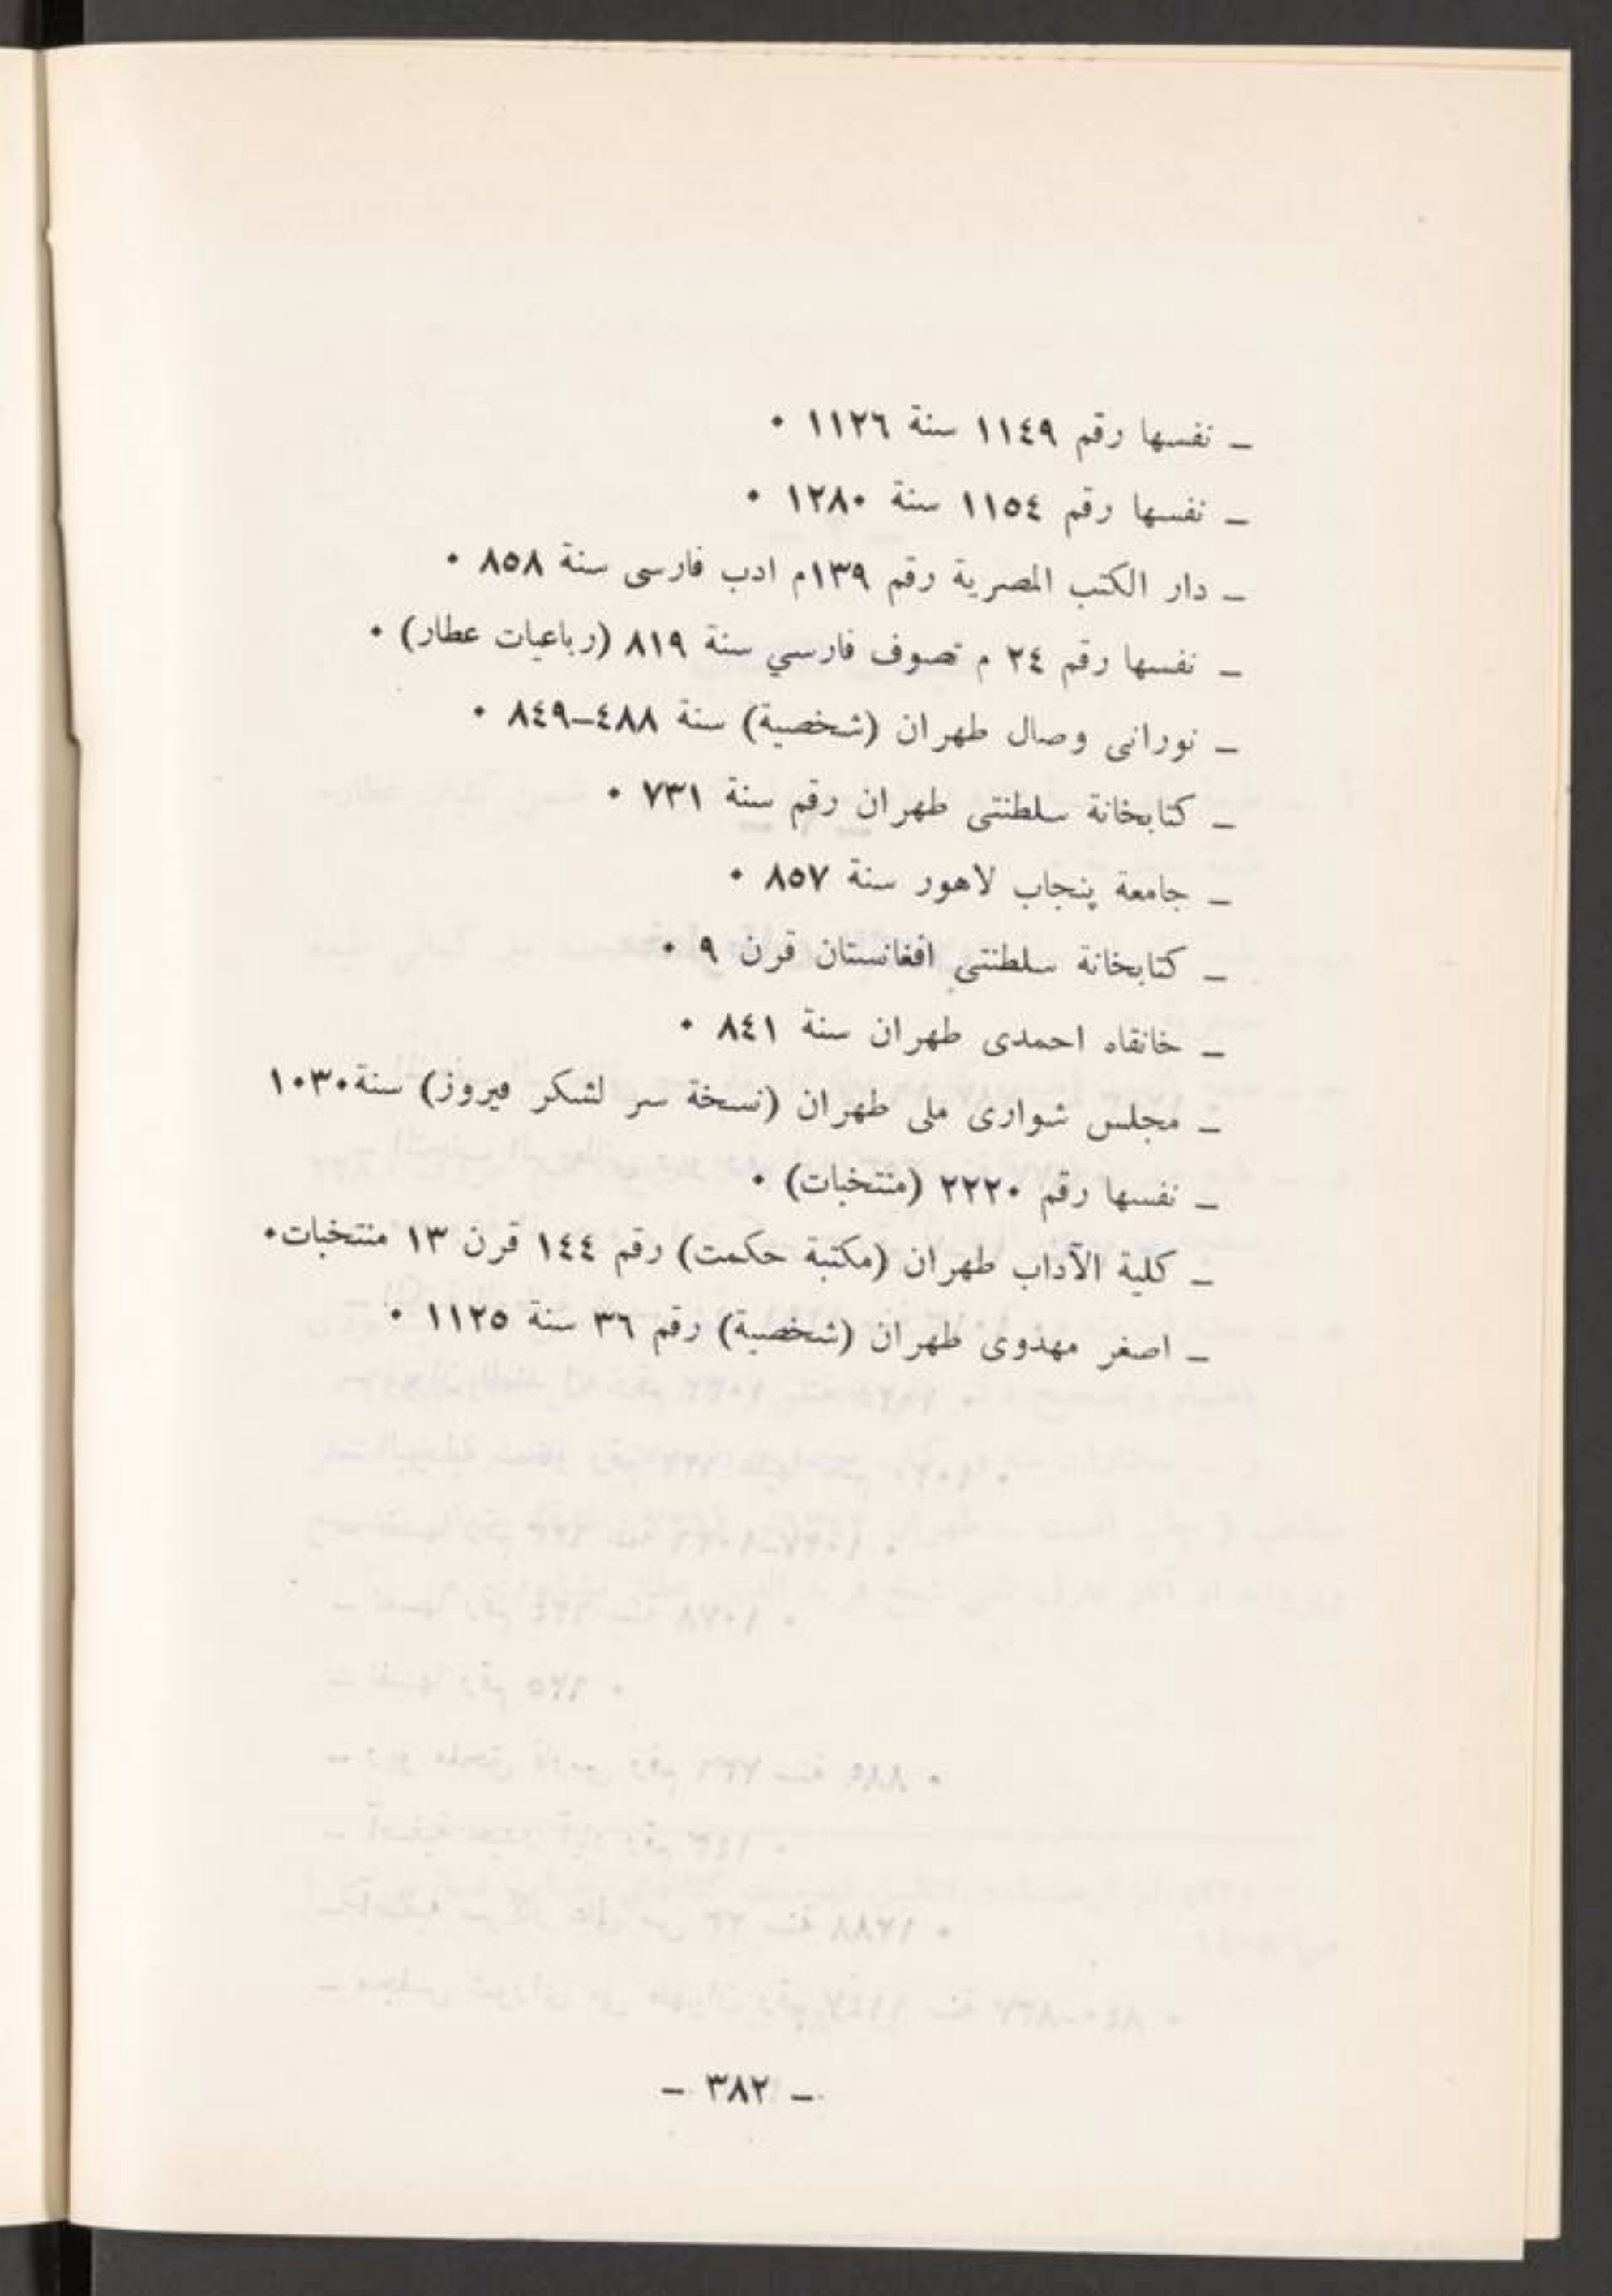 ـ نفسها رقم ١١٤٩ سنة ١١٢٦ ٠
ـ نفسها رقم ١١٥٤ سنة ١٢٨٠ ٠
ـ دار الكتب المصرية رقم ١٣٩م ادب فارسى سنة ٨٥٨ ٠
ـ نفسها رقم ٢٤ م تصوف فارسي سنة ٨١٩ (رباعيات عطار) ٠
ـ نورانى وصال طهران (شخصية) سنة ٤٨٨ـ٨٤٩ ٠
ـ كتابخانة سلطنتى طهران رقم سنة ٧٣١ ٠
ـ جامعة پنجاب لاهور سنة ٨٥٧ ٠
ـ كتابخانة سلطنتى افغانستان قرن ٩ ٠
ـ خانقاه احمدى طهران سنة ٨٤١ ٠
ـ مجلس شوارى ملى طهران (نسخة سر لشكر فيروز) سنة١٠٣٠
ـ نفسها رقم ٢٢٢٠ (منتخبات) ٠
ـ كلية الآداب طهران (مكتبة حكمت) رقم ١٤٤ قرن ١٣ منتخبات٠
ـ اصغر مهدوى طهران (شخصية) رقم ٣٦ سنة ١١٢٥ ٠
ـ ٣٨٢ ـ